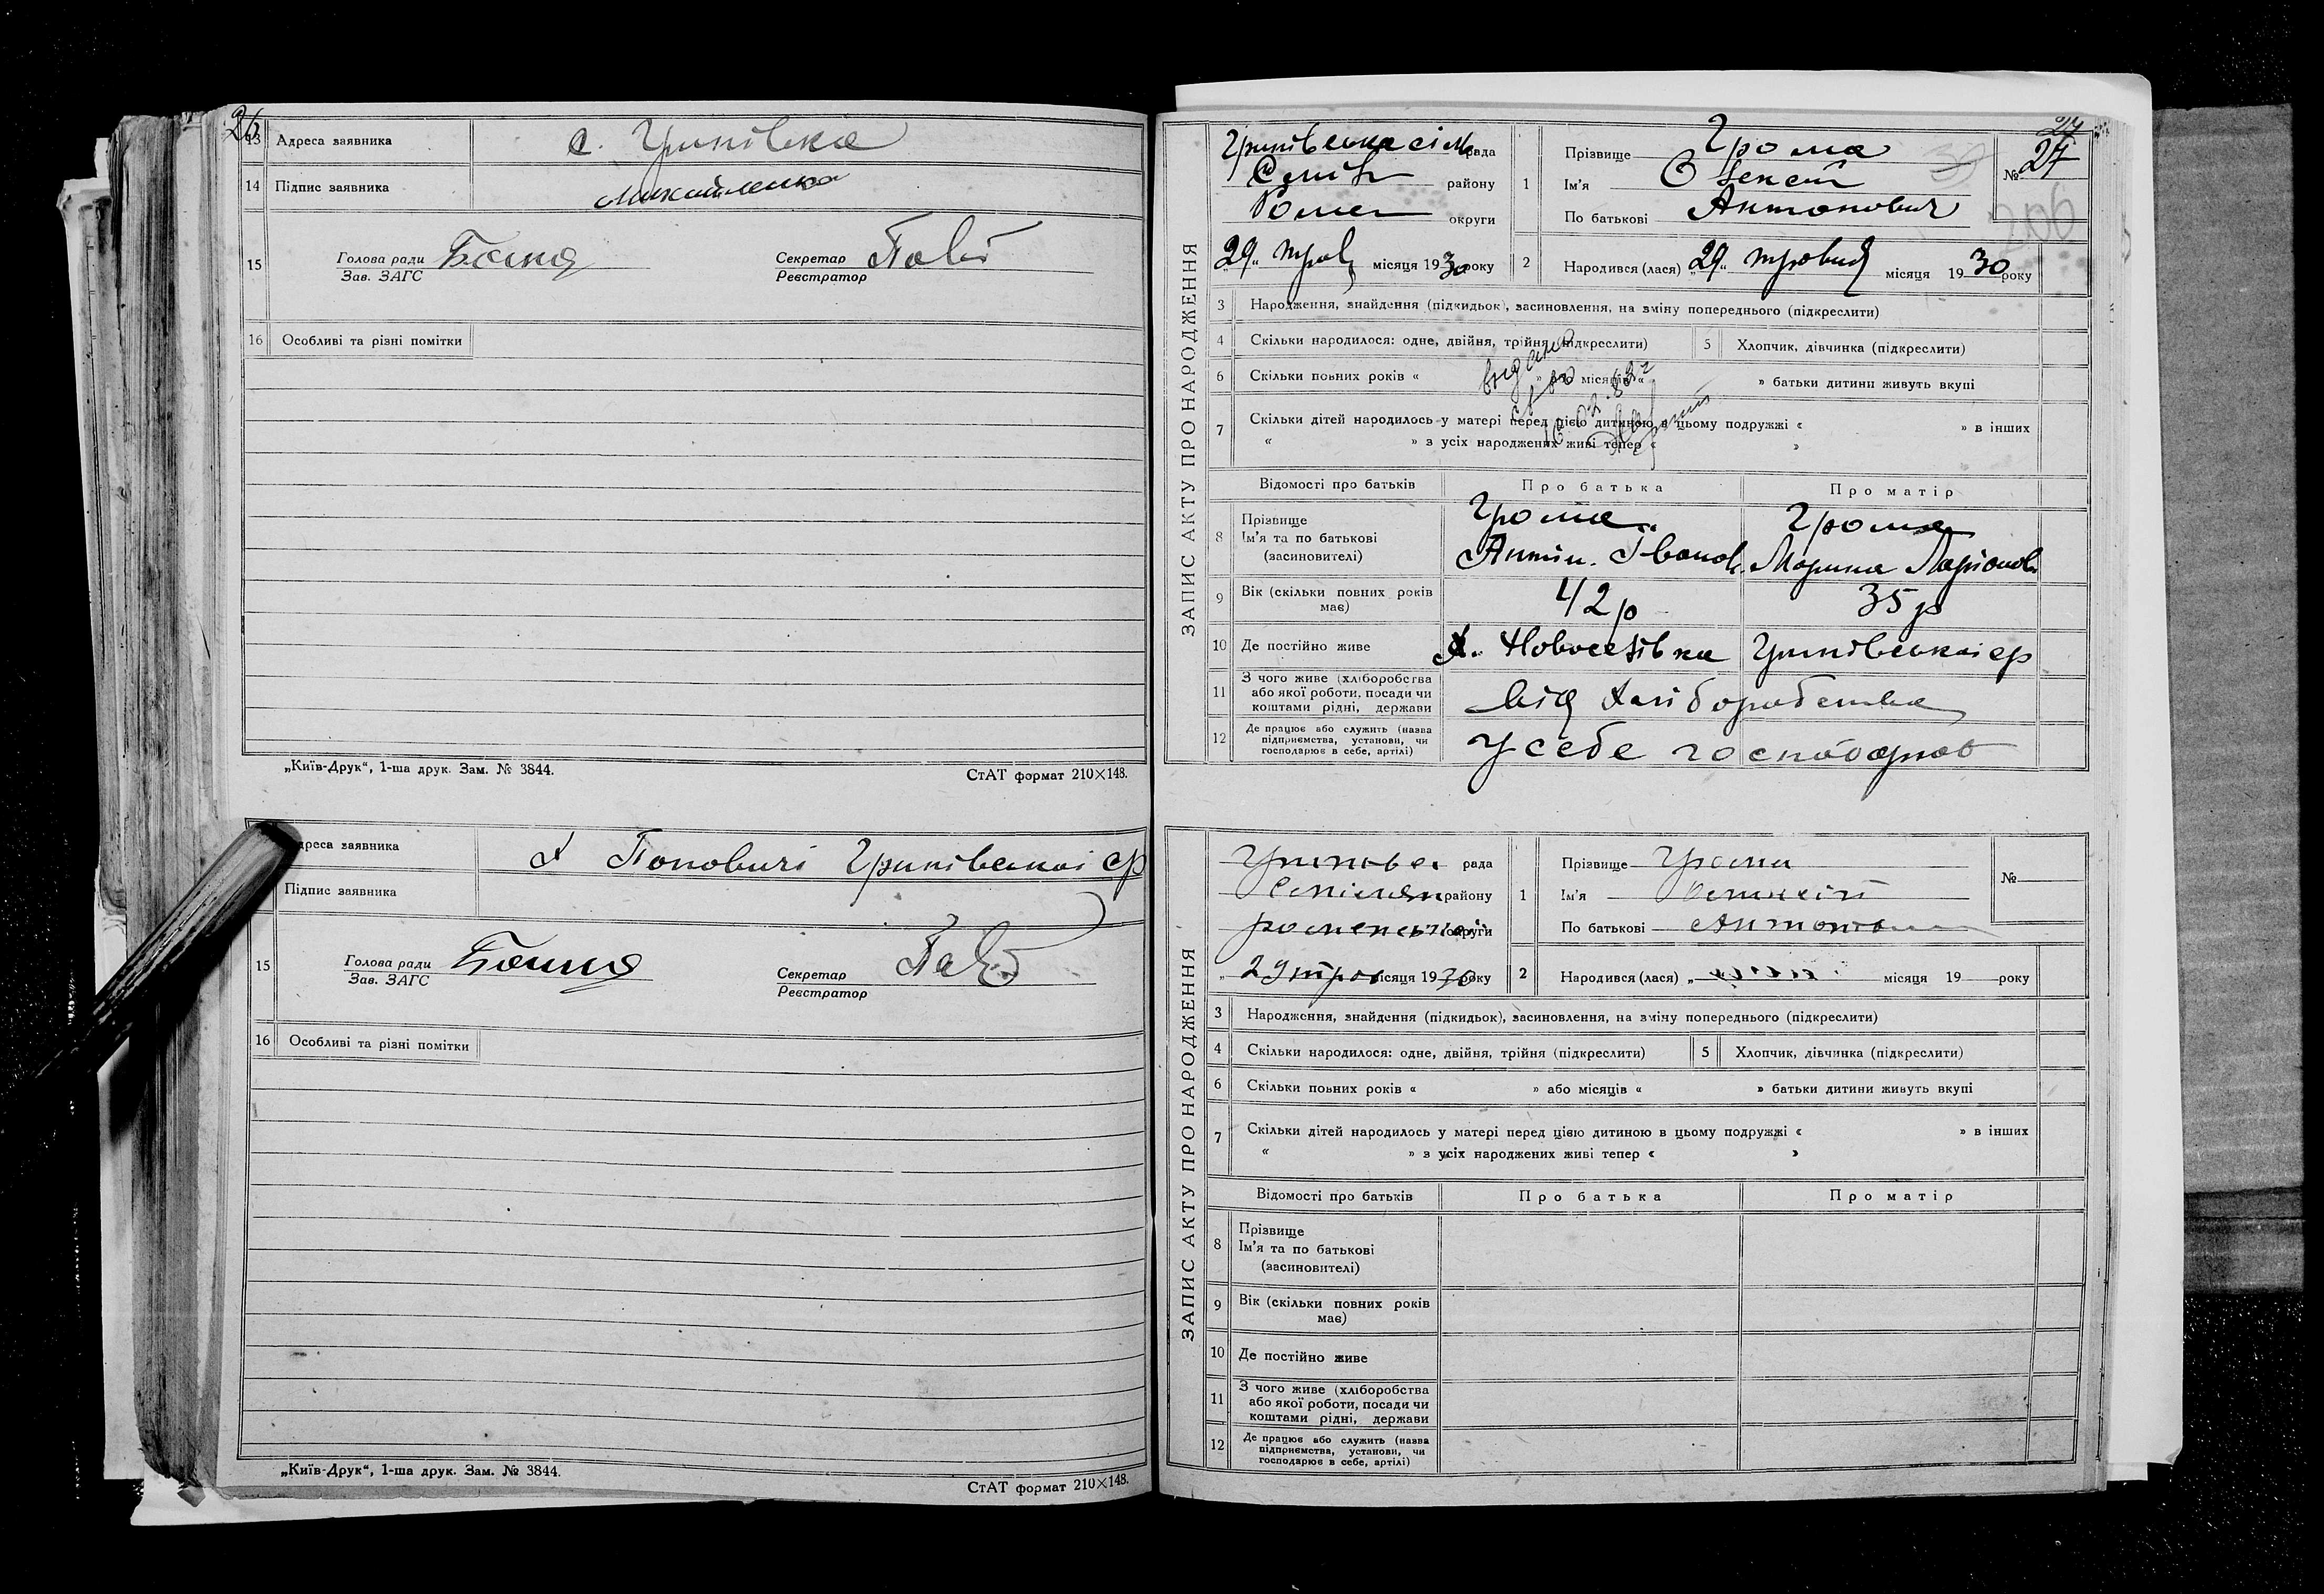 26
13 Адреса заявника с. Грипівка
14 Підпис заявника Михайленко
15 Голова ради
Зав. ЗАГС
Секретар
Реєстратор
16 Особливі та різні помітки
„Київ-Друк“, 1-ша друк. Зам. № 3844.
СтАТ формат 210×148.
дреса заявника х Поповичі Грипівської ср
Підпис заявника
15 Голова ради
Зав. ЗАГС
Секретар
Реєстратор
16 Особливі та різні помітки
„Київ-Друк“, 1-ша друк. Зам. № 3844.
СтАТ формат 210×148.
ЗАПИС АКТУ ПРО НАРОДЖЕННЯ
27
Грипівська сіль рада
району
Ромен округи
„29„ трав місяця 1930 року
1 Прізвище Грома
Ім'я Олексій
По батькові Антонович
№ 27
30
206
2 Народився (лася) „29„ травня місяця 1930 року
3 Народження, знайдення (підкидьок), засиновлення, на зміну попереднього (підкреслити)
4 Скільки народилося: одне, двійня, трійня (підкреслити)
5 Хлопчик, дівчинка (підкреслити)
6 Скільки повних років « » або місяців « » батьки дитини живуть вкупі
видано
7 Скільки дітей народилось у матері перед цією дитиною в цьому подружжі « » в інших
« » з усіх народжених живі тепер « »
Відомості про батьків Про батька Про матір
8 Прізвище
Ім'я та по батькові
(засиновителі)
Грома
Антін. Іванов.
Грома
Марина Ларіонов.
9 Вік (скільки повних років
має)
42 р
35 р
10 Де постійно живе х. Новоселівка Грипівської ср
11 З чого живе (хліборобства
або якої роботи, посади чи
коштами рідні, держави
від хліборобства
12 Де працює або служить (назва
підприємства, установи, чи
господарює в себе, артілі)
У себе господарює
ЗАПИС АКТУ ПРО НАРОДЖЕННЯ
рада
району
роменської округи
„ 29 трав місяця 1930 року
1 Прізвище Грома
Ім'я
По батькові
№
2 Народився (лася) „ місяця 19 року
3 Народження, знайдення (підкидьок), засиновлення, на зміну попереднього (підкреслити)
4 Скільки народилося: одне, двійня, трійня (підкреслити)
5 Хлопчик, дівчинка (підкреслити)
6 Скільки повних років « » або місяців « » батьки дитини живуть вкупі
7 Скільки дітей народилось у матері перед цією дитиною в цьому подружжі « » в інших
« » з усіх народжених живі тепер « »
Відомості про батьків Про батька Про матір
8 Прізвище
Ім'я та по батькові
(засиновителі)
9 Вік (скільки повних років
має)
10 Де постійно живе
11 З чого живе (хліборобства
або якої роботи, посади чи
коштами рідні, держави
12 Де працює або служить (назва
підприємства, установи, чи
господарює в себе, артілі)